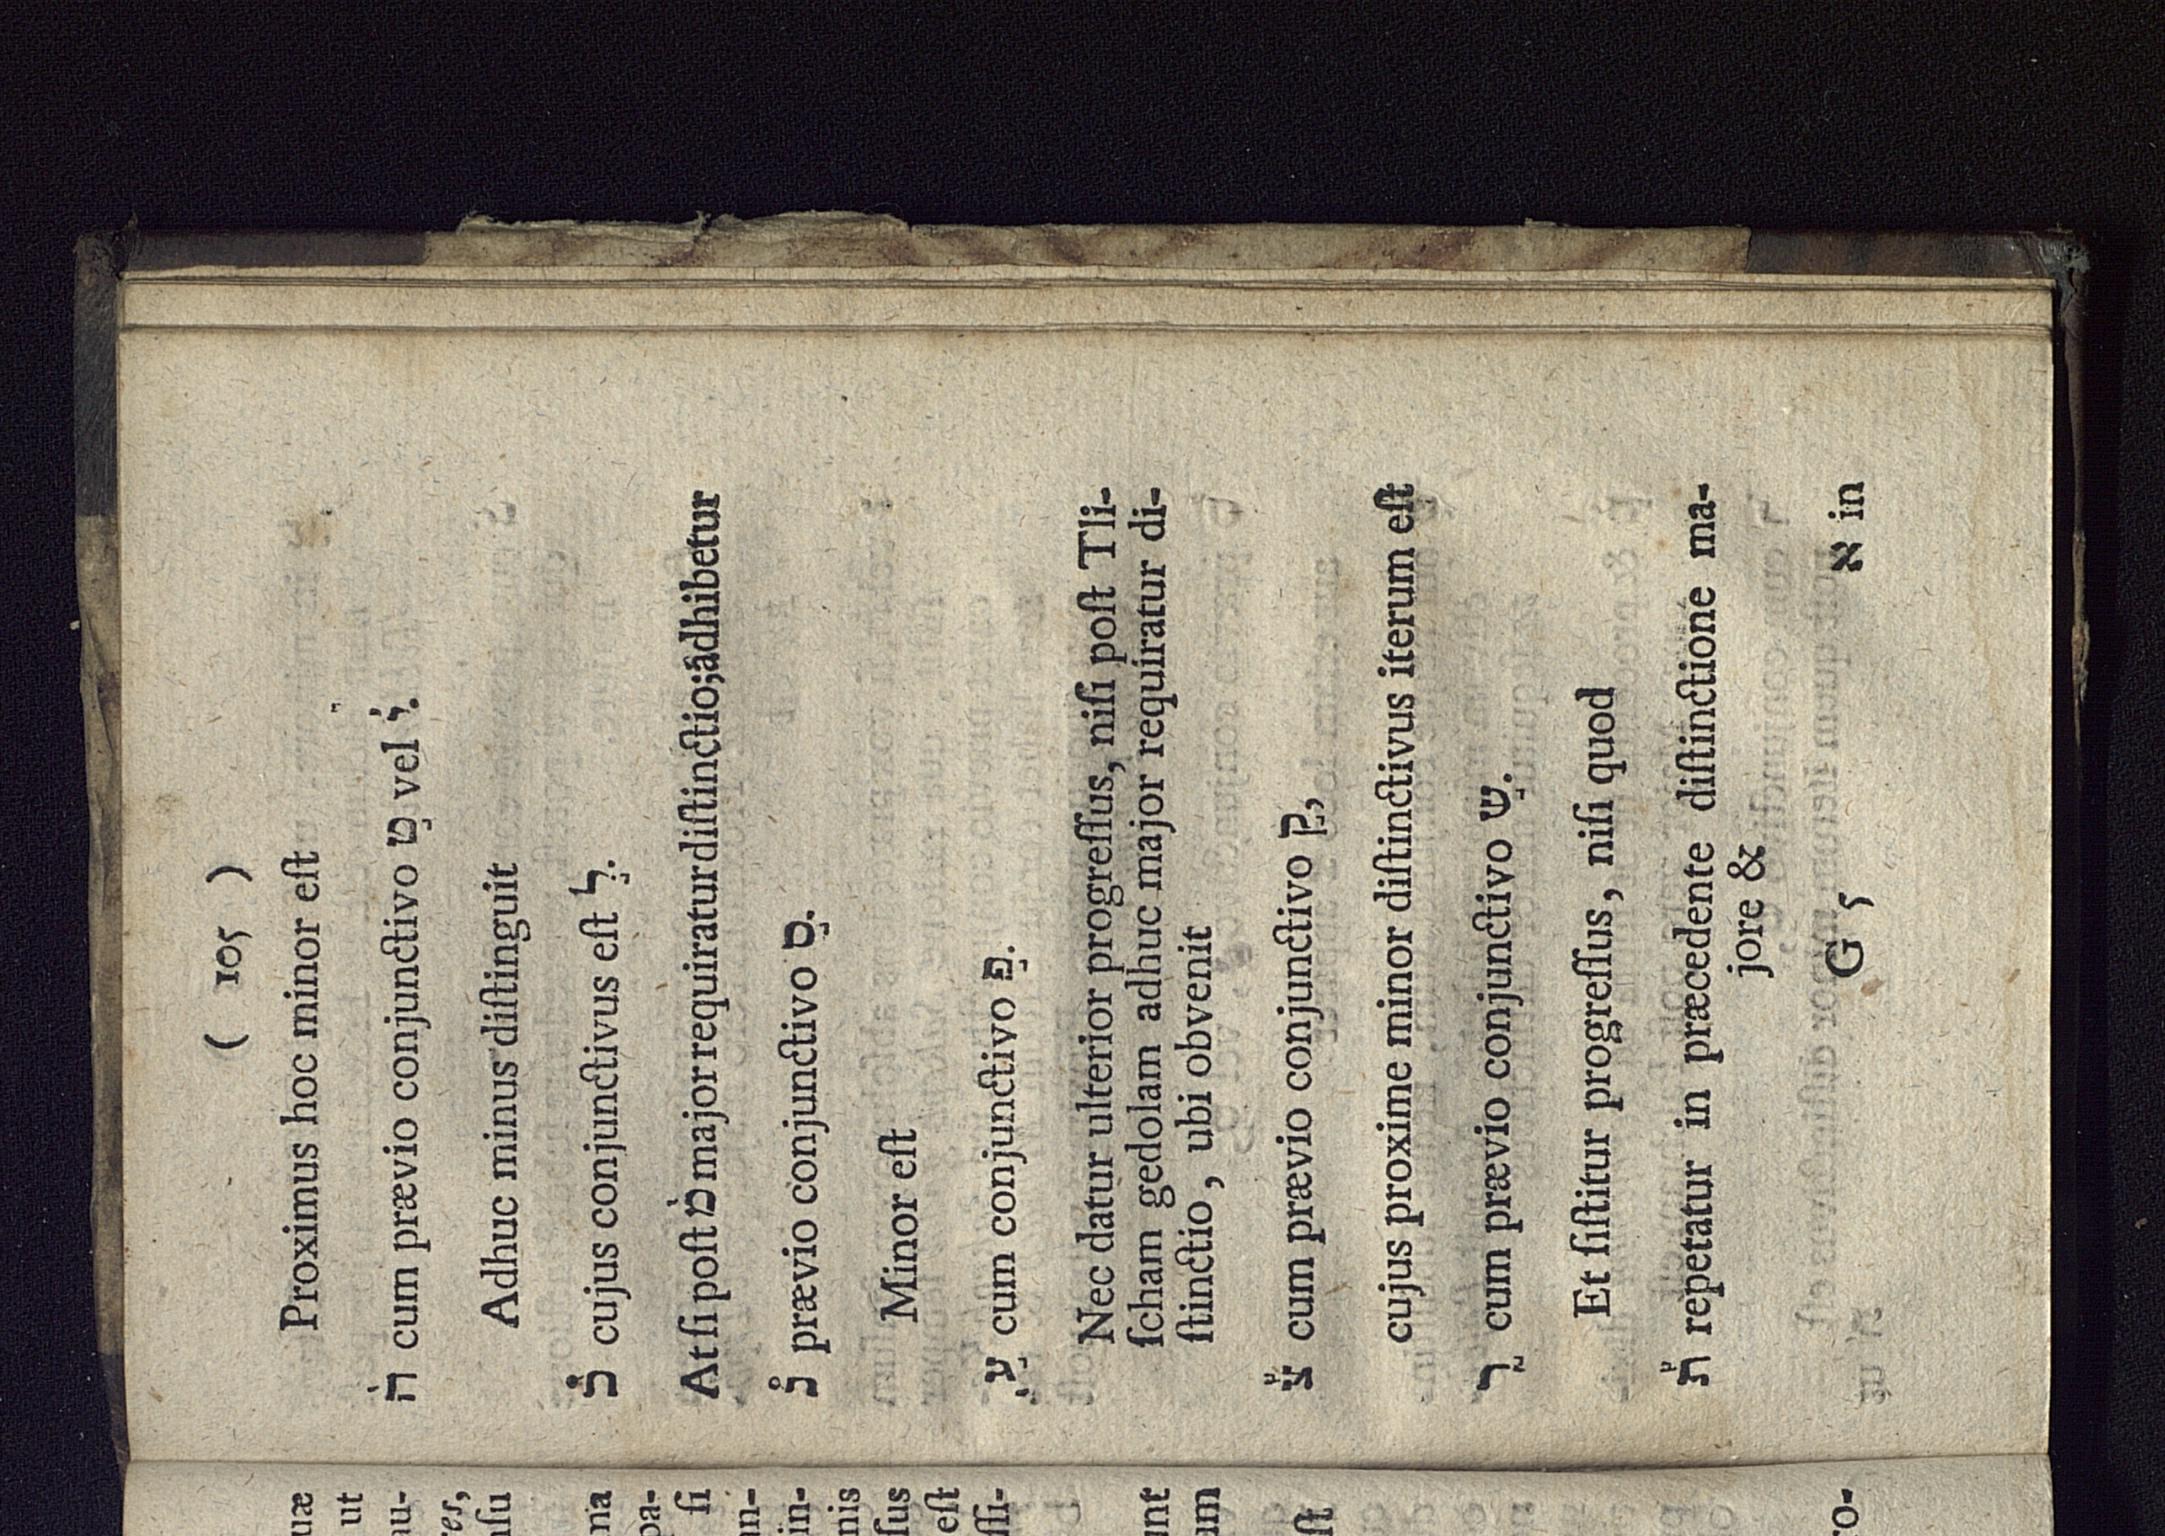 ( 105 )
Proximus hoc minor eſt
הֹ cum prævio conjunctivo ט֤ vel י֙.
Adhuc minus diſtinguit
כ֯ cujus conjunctivus eſt ל֤.
At ſi poſt מ֗ major requiratur diſtinctio; adhibetur
נ֯ prævio conjunctivo ס֤.
Minor eſt
cum conjunctivo פ֤.
Nec datur ulterior progreſſus, niſi poſt Tli-
ſcham gedolam adhuc major requiratur di-
ſtinctio, ubi obvenit
cum prævio conjunctivo
cujus proxime minor diſtinctivus iterum eſt
cum prævio conjunctivo
Et ſiſtitur progreſſus, niſi quod
repetatur in præcedente diſtinctione ma-
jore &
G 5
א in
uæ
ut
au-
res,
nſu
na
pa-
ſi
an-
in-
nis
ſus
eſt
ſſi-
unt
um
ſt
ro-